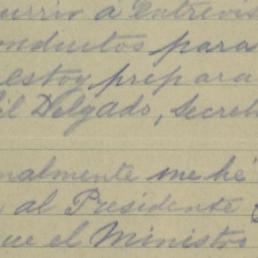 urrir a Entrevis
onductos para
estoy prepara
il Delgado, secret
nalmente me hé
al Presidente
ue el Ministro